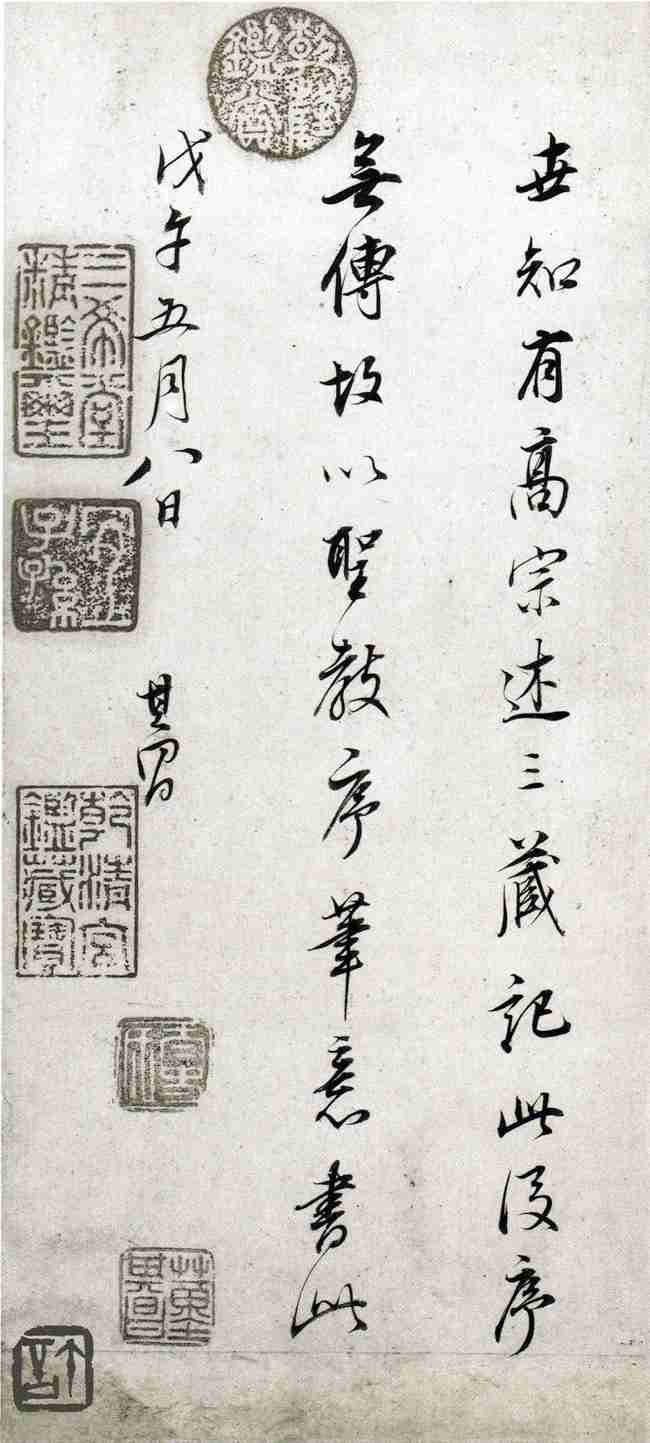 世知有高宗述三藏記此後序
無傳故以聖教序筆意書此
戊午五月八日
其昌
乾隆鑑賞
三希堂精鑑璽
宜子孫
乾清宮鑑藏寶
董其昌